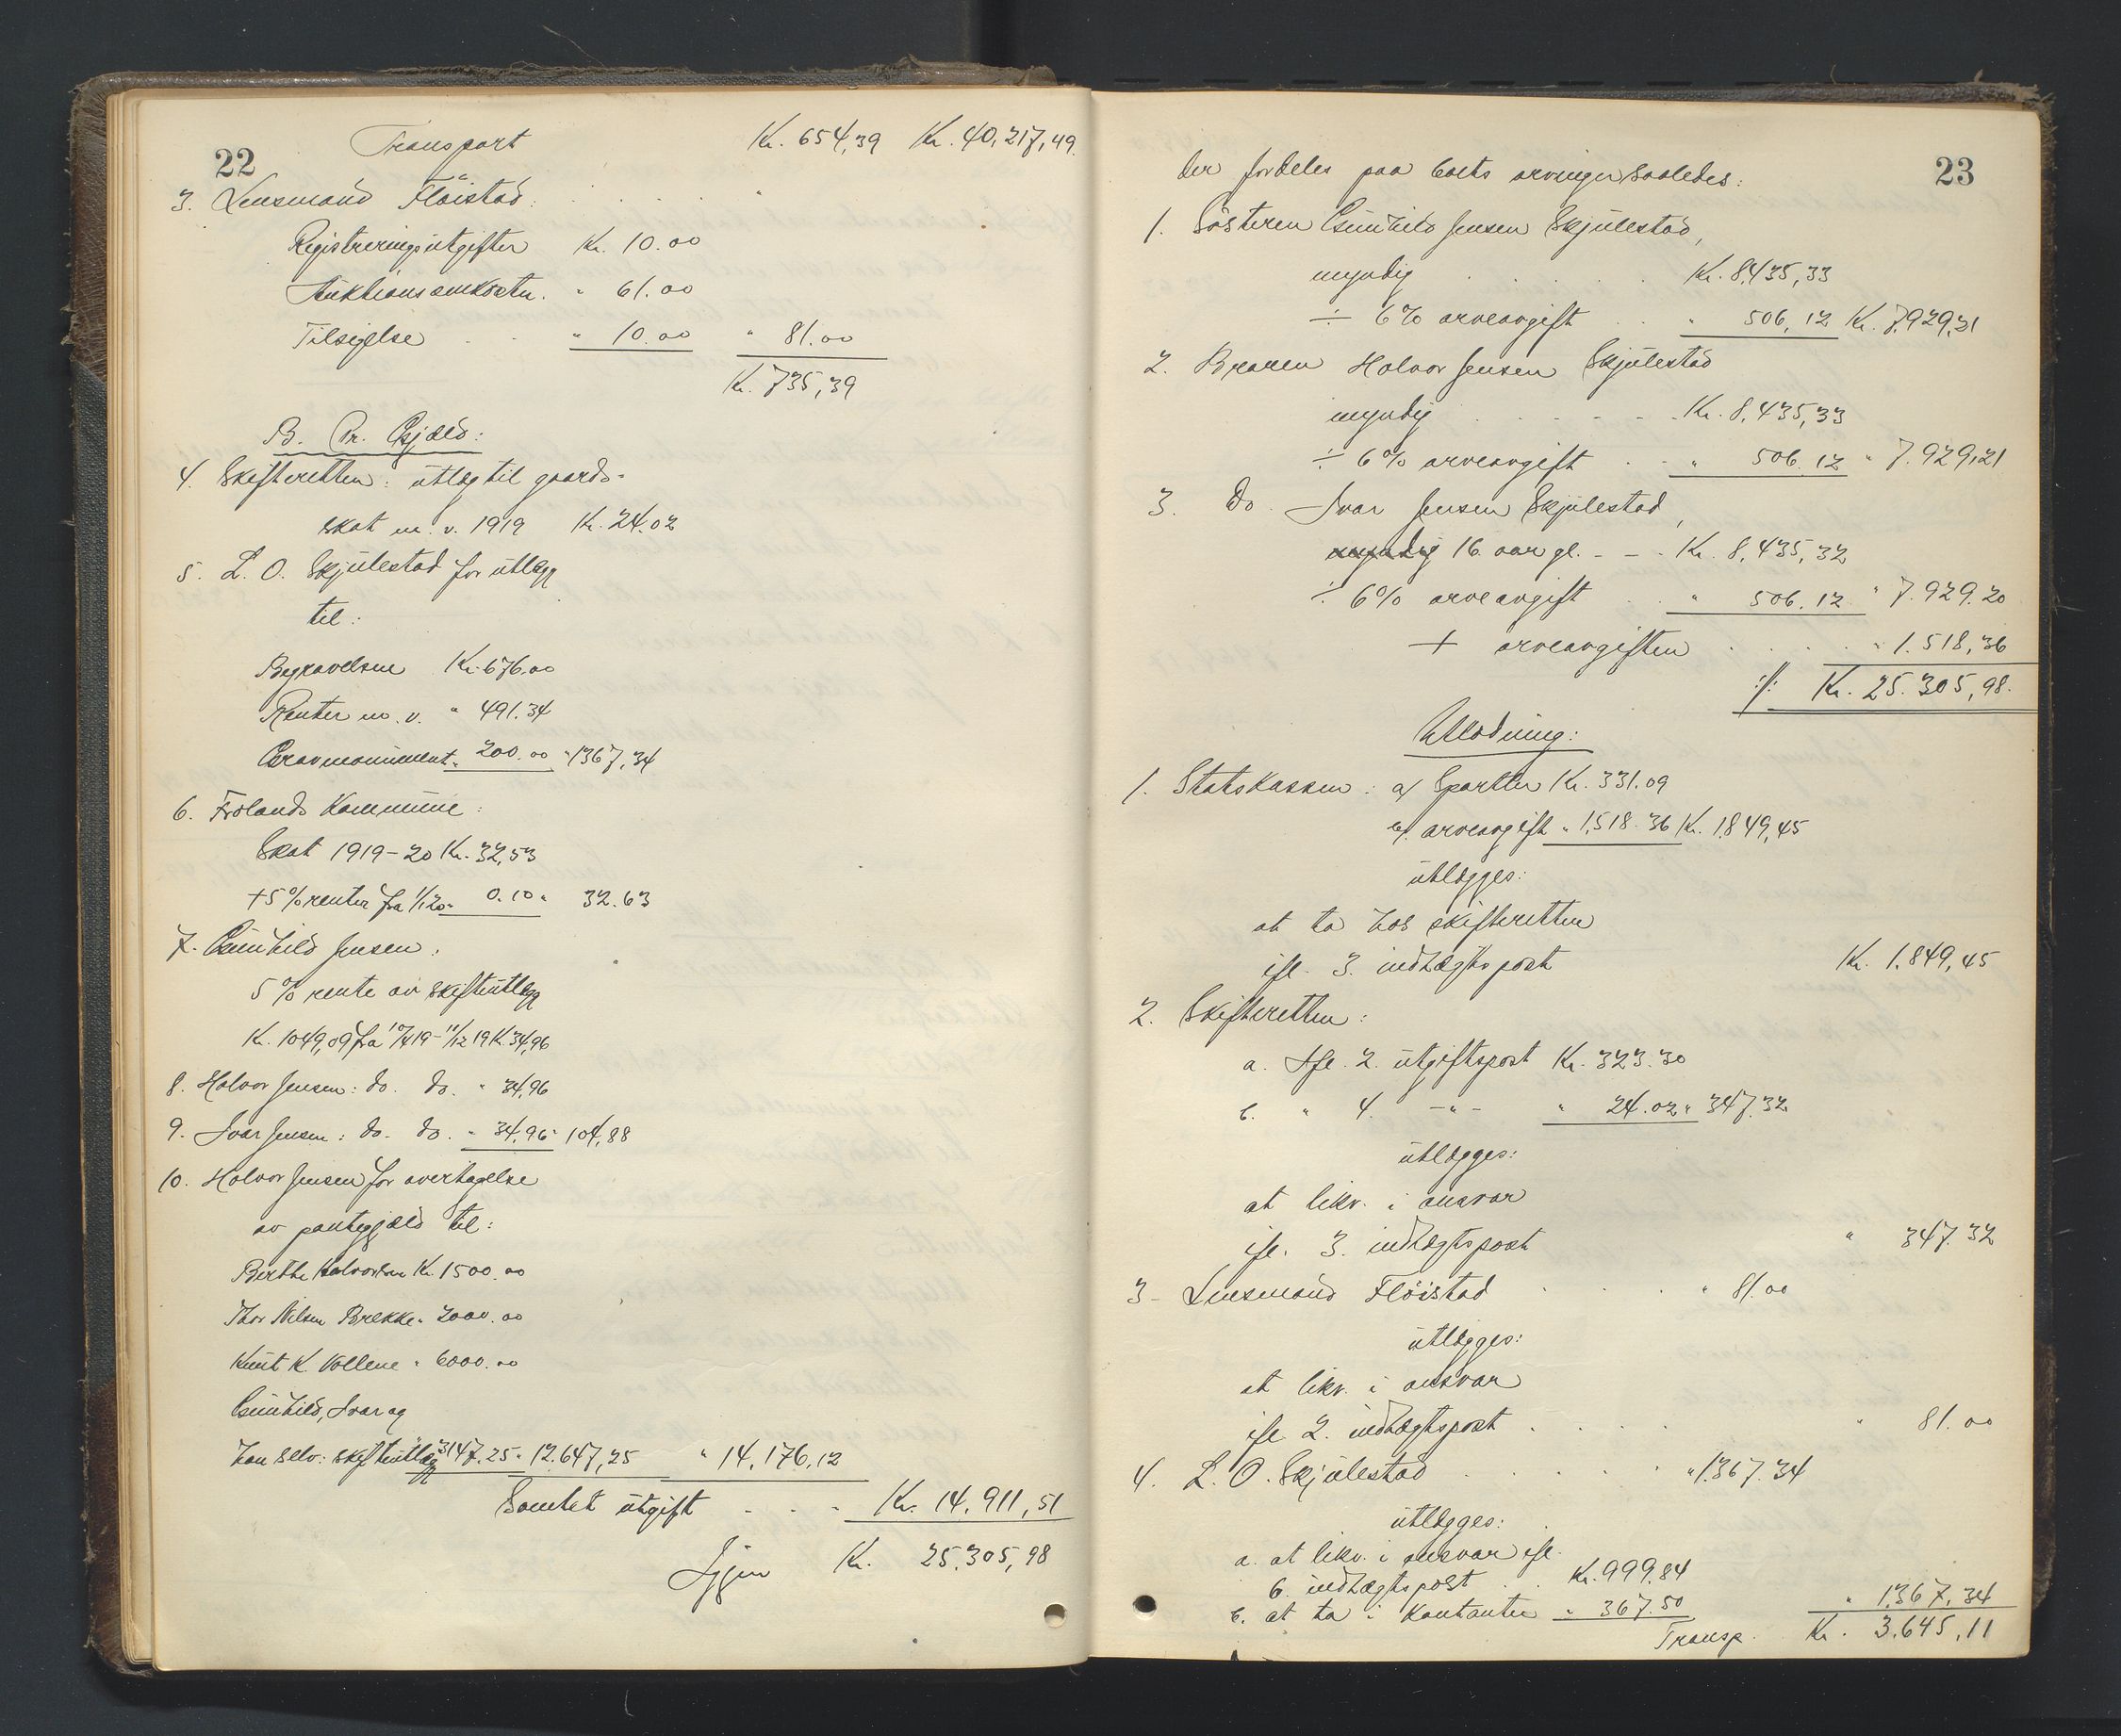 22
Transport Kr. 654,39 Kr. 40,217,49
3. Lensmand Flöistad:
Registreringsutgifter Kr. 10.00
Auktionsomkostn. " 61.00
Tilsigelse " 10.00 " 81.00
Kr. 735,39
B. Pr. Gjæld:
4. Skifteretten: utlæg til gaards-
skat m. v. 1919 Kr. 24.02
5. L. O. Skjulestad for utlægg
til:
Begravelsen Kr. 676.00
Renter m. v. " 491.34
Gravmonument " 200.00 " 1367,34
6. Frolands Kommune:
Skat 1919-20 Kr. 32,53
+ 5% renter fra 1/1 20 " 0.10 " 32.63
7. Gunhild Jensen:
5% rente av skifteutlægg
Kr. 1049,09 fra 10/4 19 - 11/12 19 Kr. 34,96
8. Halvor Jensen: do. do. " 34,96
9. Ivar Jensen: do. do. " 34,96 " 104,88
10. Halvor Jensen for overtagelse
av pantegjæld til:
Berthe Halvorsen Kr. 1500.00
Thor Nilsen Brekke " 2000.00
Knut K. Vollene " 6000.00
Gunhild, Ivar og
han selv: skifteutlægg " 3147.25 " 12.647,25 " 14,176,12
Samlet utgift Kr. 14,911,51
Igjen Kr. 25,305,98
23
der fordeles paa boets arvinger saaledes:
1. Søsteren Gunhild Jensen Skjulestad,
myndig Kr. 8,435,33
÷ 6% arveavgift " 506,12 Kr. 7,929,21
2. Broren Halvor Jensen Skjulestad
myndig Kr. 8,435,33
÷ 6% arveavgift " 506.12 " 7.929,21
3. Do. Ivar Jensen Skjulestad,
myndig 16 aar gl. - - Kr. 8,435,32
÷ 6% arveavgift " 506.12 " 7.929.20
+ arveavgiften " 1.518,36
./. Kr. 25.305,98.
Utlodning:
1. Statskassen: a/ Sportler Kr. 331.09
b/. arveavgift " 1,518.36 Kr. 1,849,45
utlægges:
at ta hos skifteretten
ifl. 3. indtægtspost Kr. 1,849,45
2. Skifteretten:
a. Ifl. 2. utgiftspost Kr. 323.30
b. " 4. -"- " 24.02 " 347.32
utlægges:
at likv. i ansvar
ifl. 3. indtægtspost " 347.32
3. Lensmand Flöistad " 81.00
utlægges:
at likv. i ansvar
ifl. 2. indtægtspost " 81.00
4. L. O. Skjulestad " 1367.34
utlægges:
a. at likv. i ansvar ifl.
6. indtægtspost Kr. 999.84
b. at ta i kontanter " 367.50 " 1,367,34
Transp. Kr. 3.645,11